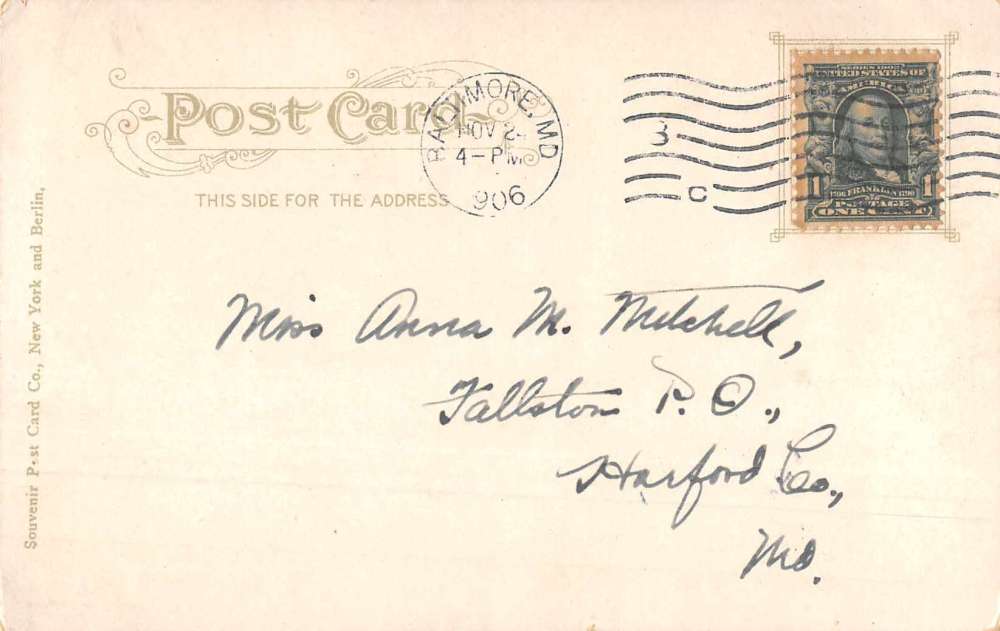 Post Card
THIS SIDE FOR THE ADDRESS
BALTIMORE, MD
NOV 2
4-PM
1906
B
C
SERIES 1902
UNITED STATES OF
AMERICA
1 1706 FRANKLIN 1790 1
POSTAGE
ONE CENT
Miss Anna M. Mitchell,
Fallston P. O.,
Harford Co.,
Md.
Souvenir Post Card Co., New York and Berlin,